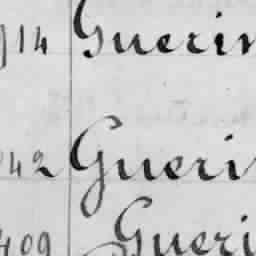 14 Guerin
42 Gueri
409 Gueri